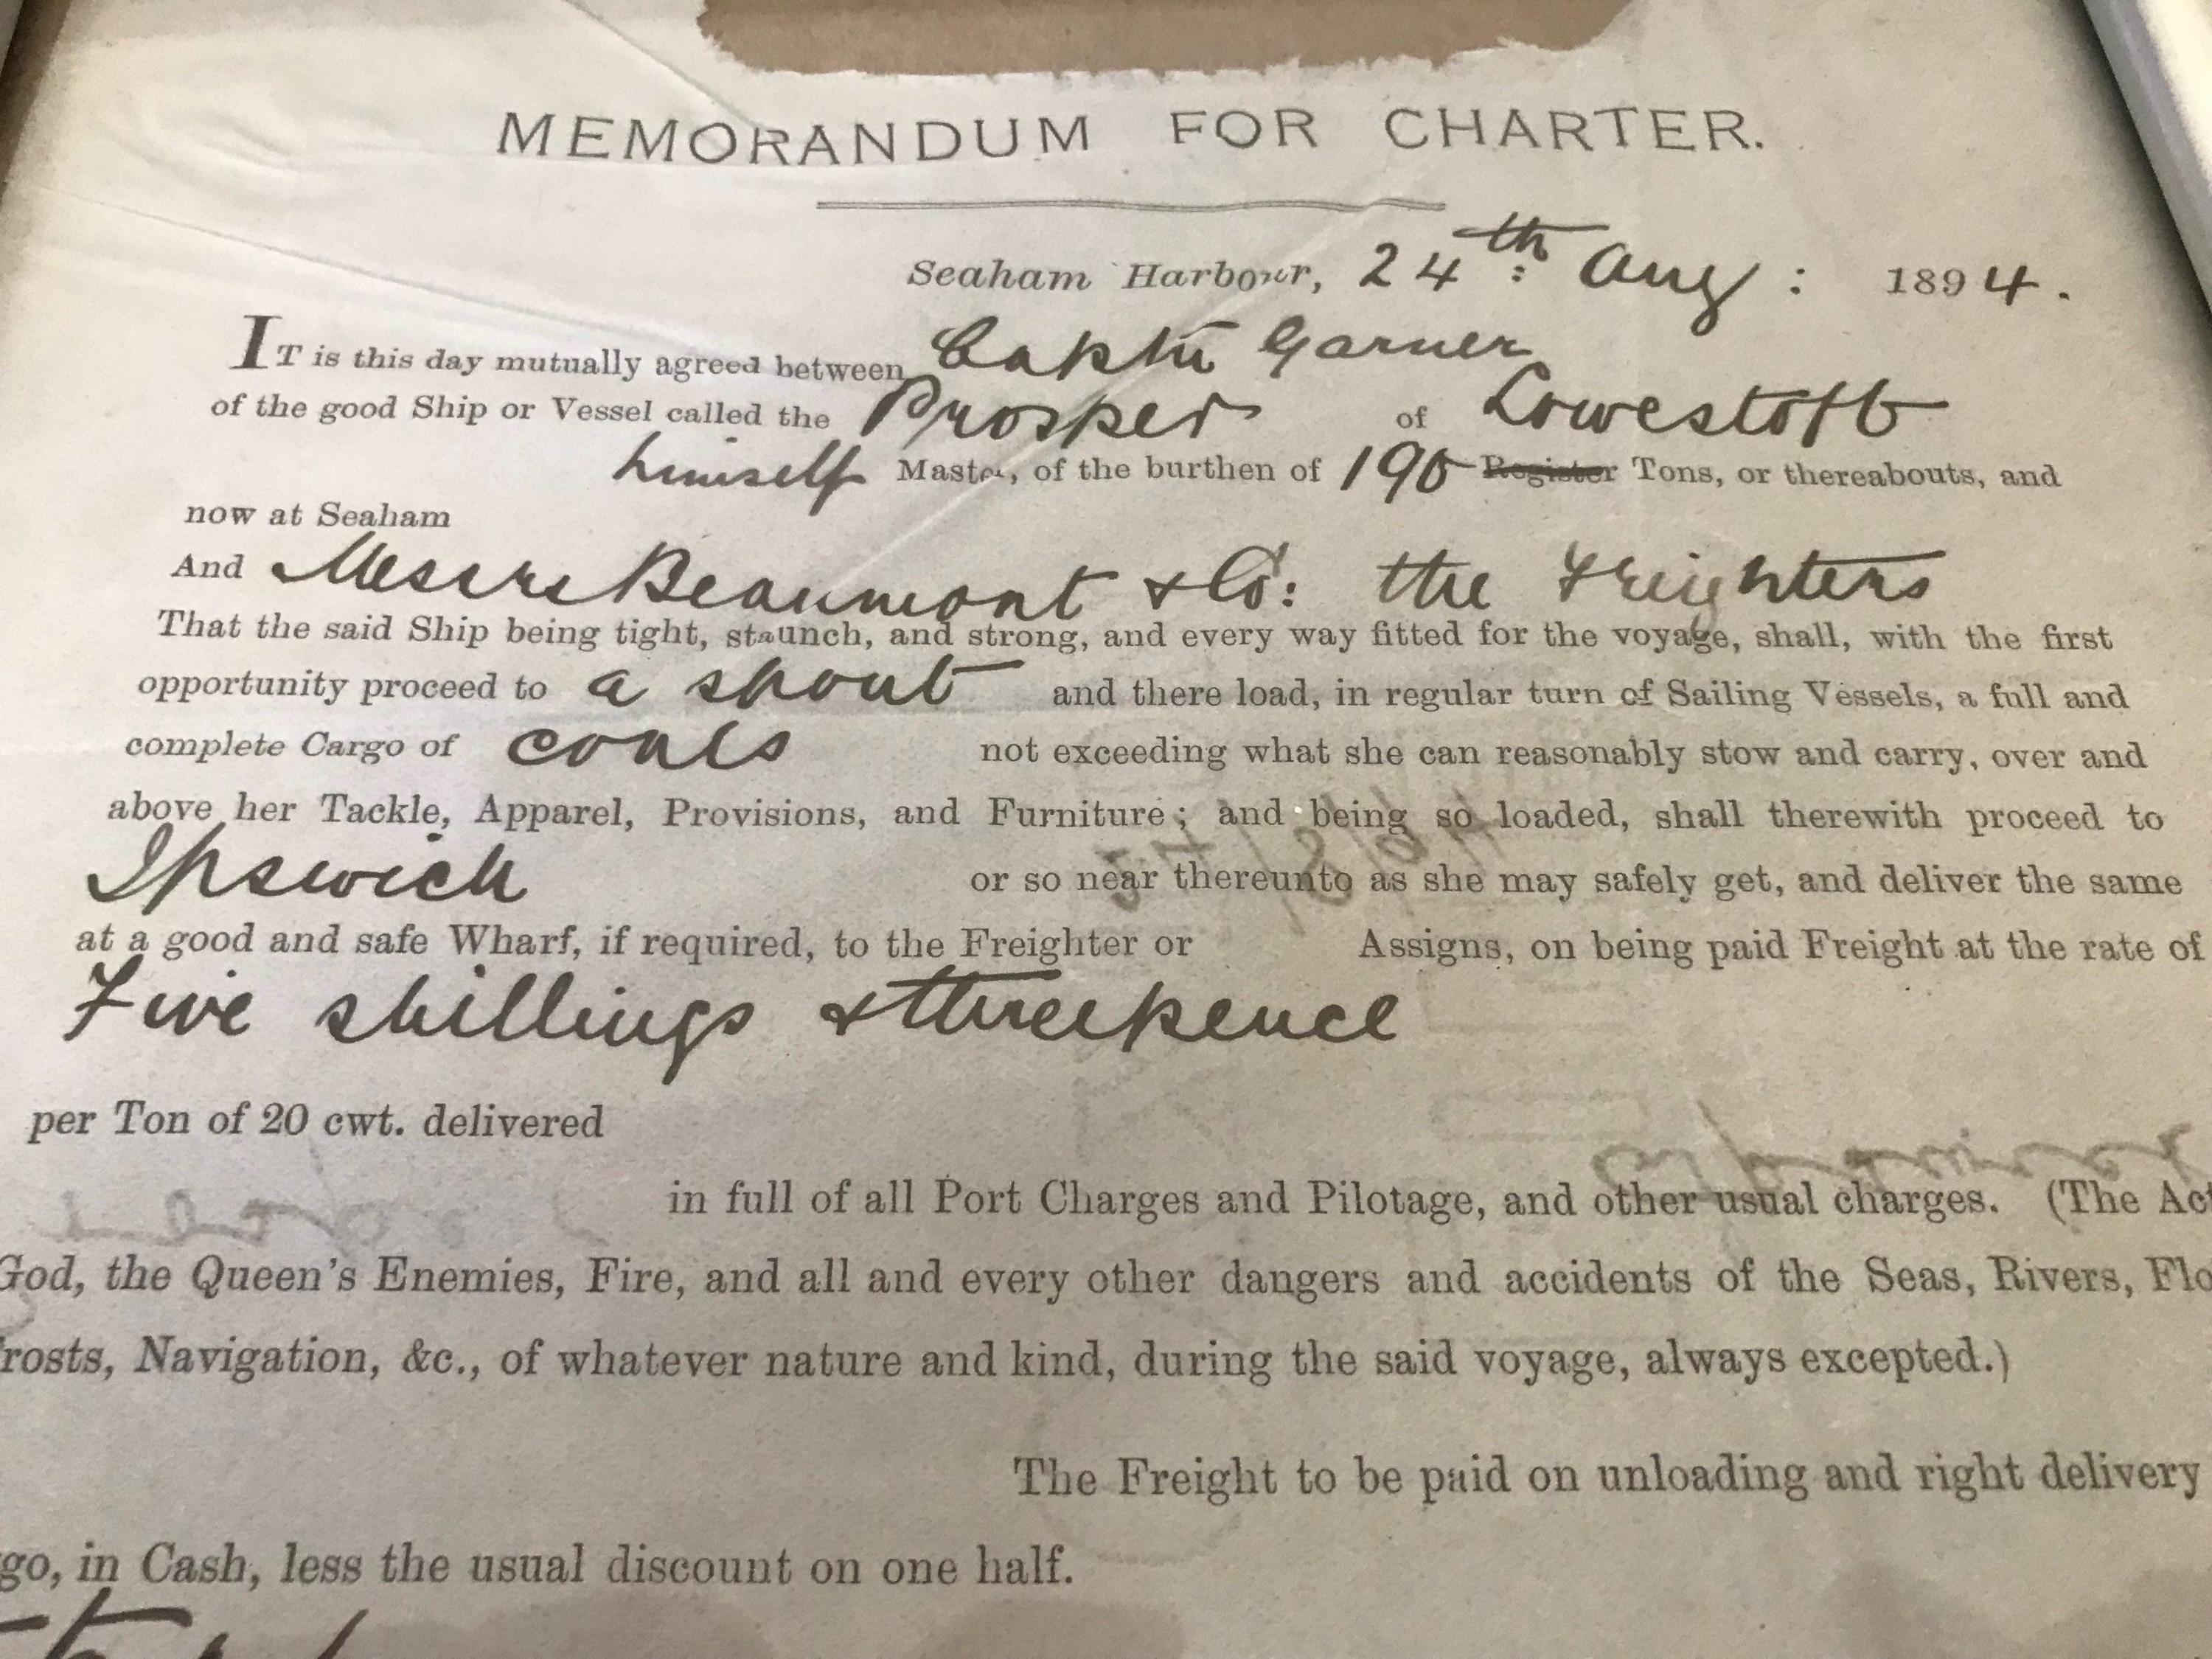 MEMORANDUM FOR CHARTER.
Seaham Harbour, 24th: Aug: 1894.
IT is this day mutually agreed between Captn Garner
of the good Ship or Vessel called the Prosper of Lowestoft
himself Master, of the burthen of 190 Register Tons, or thereabouts, and
now at Seaham
And Messrs Beaumont & Co: the Freighters
That the said Ship being tight, staunch, and strong, and every way fitted for the voyage, shall, with the first
opportunity proceed to a spout and there load, in regular turn of Sailing Vessels, a full and
complete Cargo of coals not exceeding what she can reasonably stow and carry, over and
above her Tackle, Apparel, Provisions, and Furniture; and being so loaded, shall therewith proceed to
Ipswich or so near thereunto as she may safely get, and deliver the same
at a good and safe Wharf, if required, to the Freighter or Assigns, on being paid Freight at the rate of
Five shillings & threepence
per Ton of 20 cwt. delivered
in full of all Port Charges and Pilotage, and other usual charges. (The Act
God, the Queen's Enemies, Fire, and all and every other dangers and accidents of the Seas, Rivers, Flo
rosts, Navigation, &c., of whatever nature and kind, during the said voyage, always excepted.)
The Freight to be paid on unloading and right delivery
go, in Cash, less the usual discount on one half.